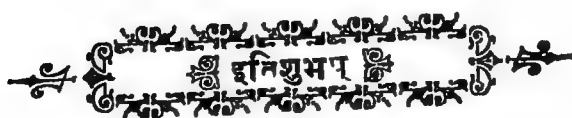 इतिशुभम्